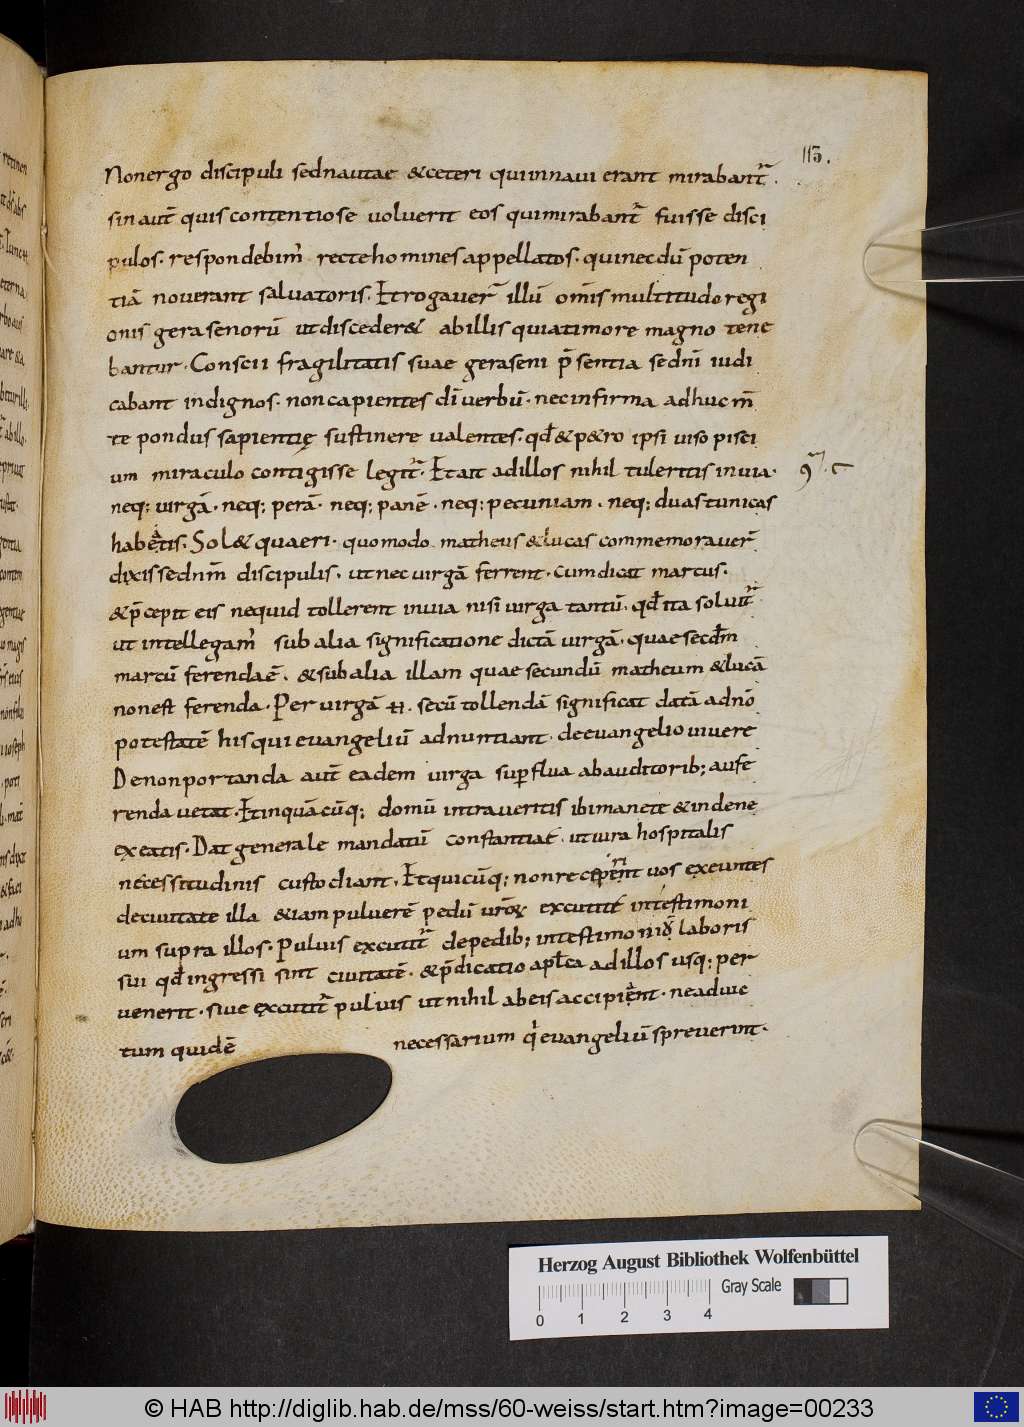 115.
Nonergo discipuli sednautae &ceteri quiinnaui erant mirabant᷑.
sinaut̄ quis contentiose uoluerit eos quimirabant᷑ fuisse disci
pulos. respondebim᷒ rectehomines appellatos. quinecdū poten
tiā nouerant saluatoris. Etrogauer̄ illū om̄is multitudo regi
onis gerasenorū utdisceder& abillis quiatimore magno tene
bantur. Conscii fragilitatis suae geraseni p̄sentia sedn̄i iudi
cabant indignos. noncapientes dī uerbū. necinfirma adhuc m̄
te pondus sapientię sustinere ualentes. qđ &p&ro ipsi uiso pisci
um miraculo contigisse legit᷑. Etait adillos nihil tuleritis inuia.
neq; uirgā. neq; perā. neq; panē. neq; pecuniam. neq; duastunicas
habeatis. Sol& quaeri. quomodo matheus &lucas commemorauer̄
dixissedn̄m discipulis. utnec uirgā ferrent. Cumdicit marcus.
&p̄cepit eis nequid tollerent inuia nisi uirga tantū. qđ ita soluit᷑
ut intellegam᷒ sub alia significatione dictā uirgā. quae secđm
marcū ferendaē. &subalia illam quae secundū matheum &lucā
nonest ferenda. Per uirgā .. secū tollendā significat datā adn̄o
potestatē hisqui euangeliū adnuntiant. deeuangelio uiuere
Denonportanda aut̄ eadem uirga sup̄flua abauditorib; aufe
renda uetat. Etinquācūq; domū intraueritis ibimanete &indene
exeatis. Dat generale mandatū constantiae. utiura hospitalis
necessitudinis custodiant. Etquicūq; nonreceperint uos exeuntes
deciuitate illa &iam puluerē pedū uror̄ excutite intestimoni
um supra illos. Puluis excutit᷑ depedib; intestimoniū laboris
sui qđ ingressi sint ciuitatē. &p̄dicatio apl̄ica adillos usq; per
uenerit. siue excutit᷑ puluis utnihil abeis accipient. neaduic
tum quidē necessarium qi euangeliū spreuerint.
Herzog August Bibliothek Wolfenbüttel
Gray Scale
0 1 2 3 4
© HAB http://diglib.hab.de/mss/60-weiss/start.htm?image=00233